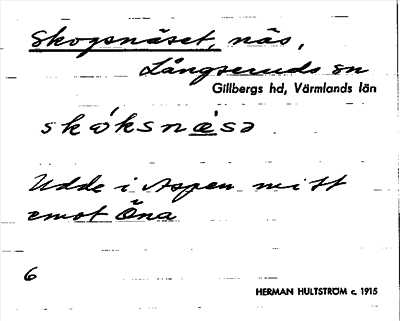 Skogsnäset, näs,
Långseruds sn
Gillbergs hd, Värmlands län
skóksnǽsə
Udde i Aspen mitt
emot Öna
6
HERMAN HULTSTRÖM c. 1915